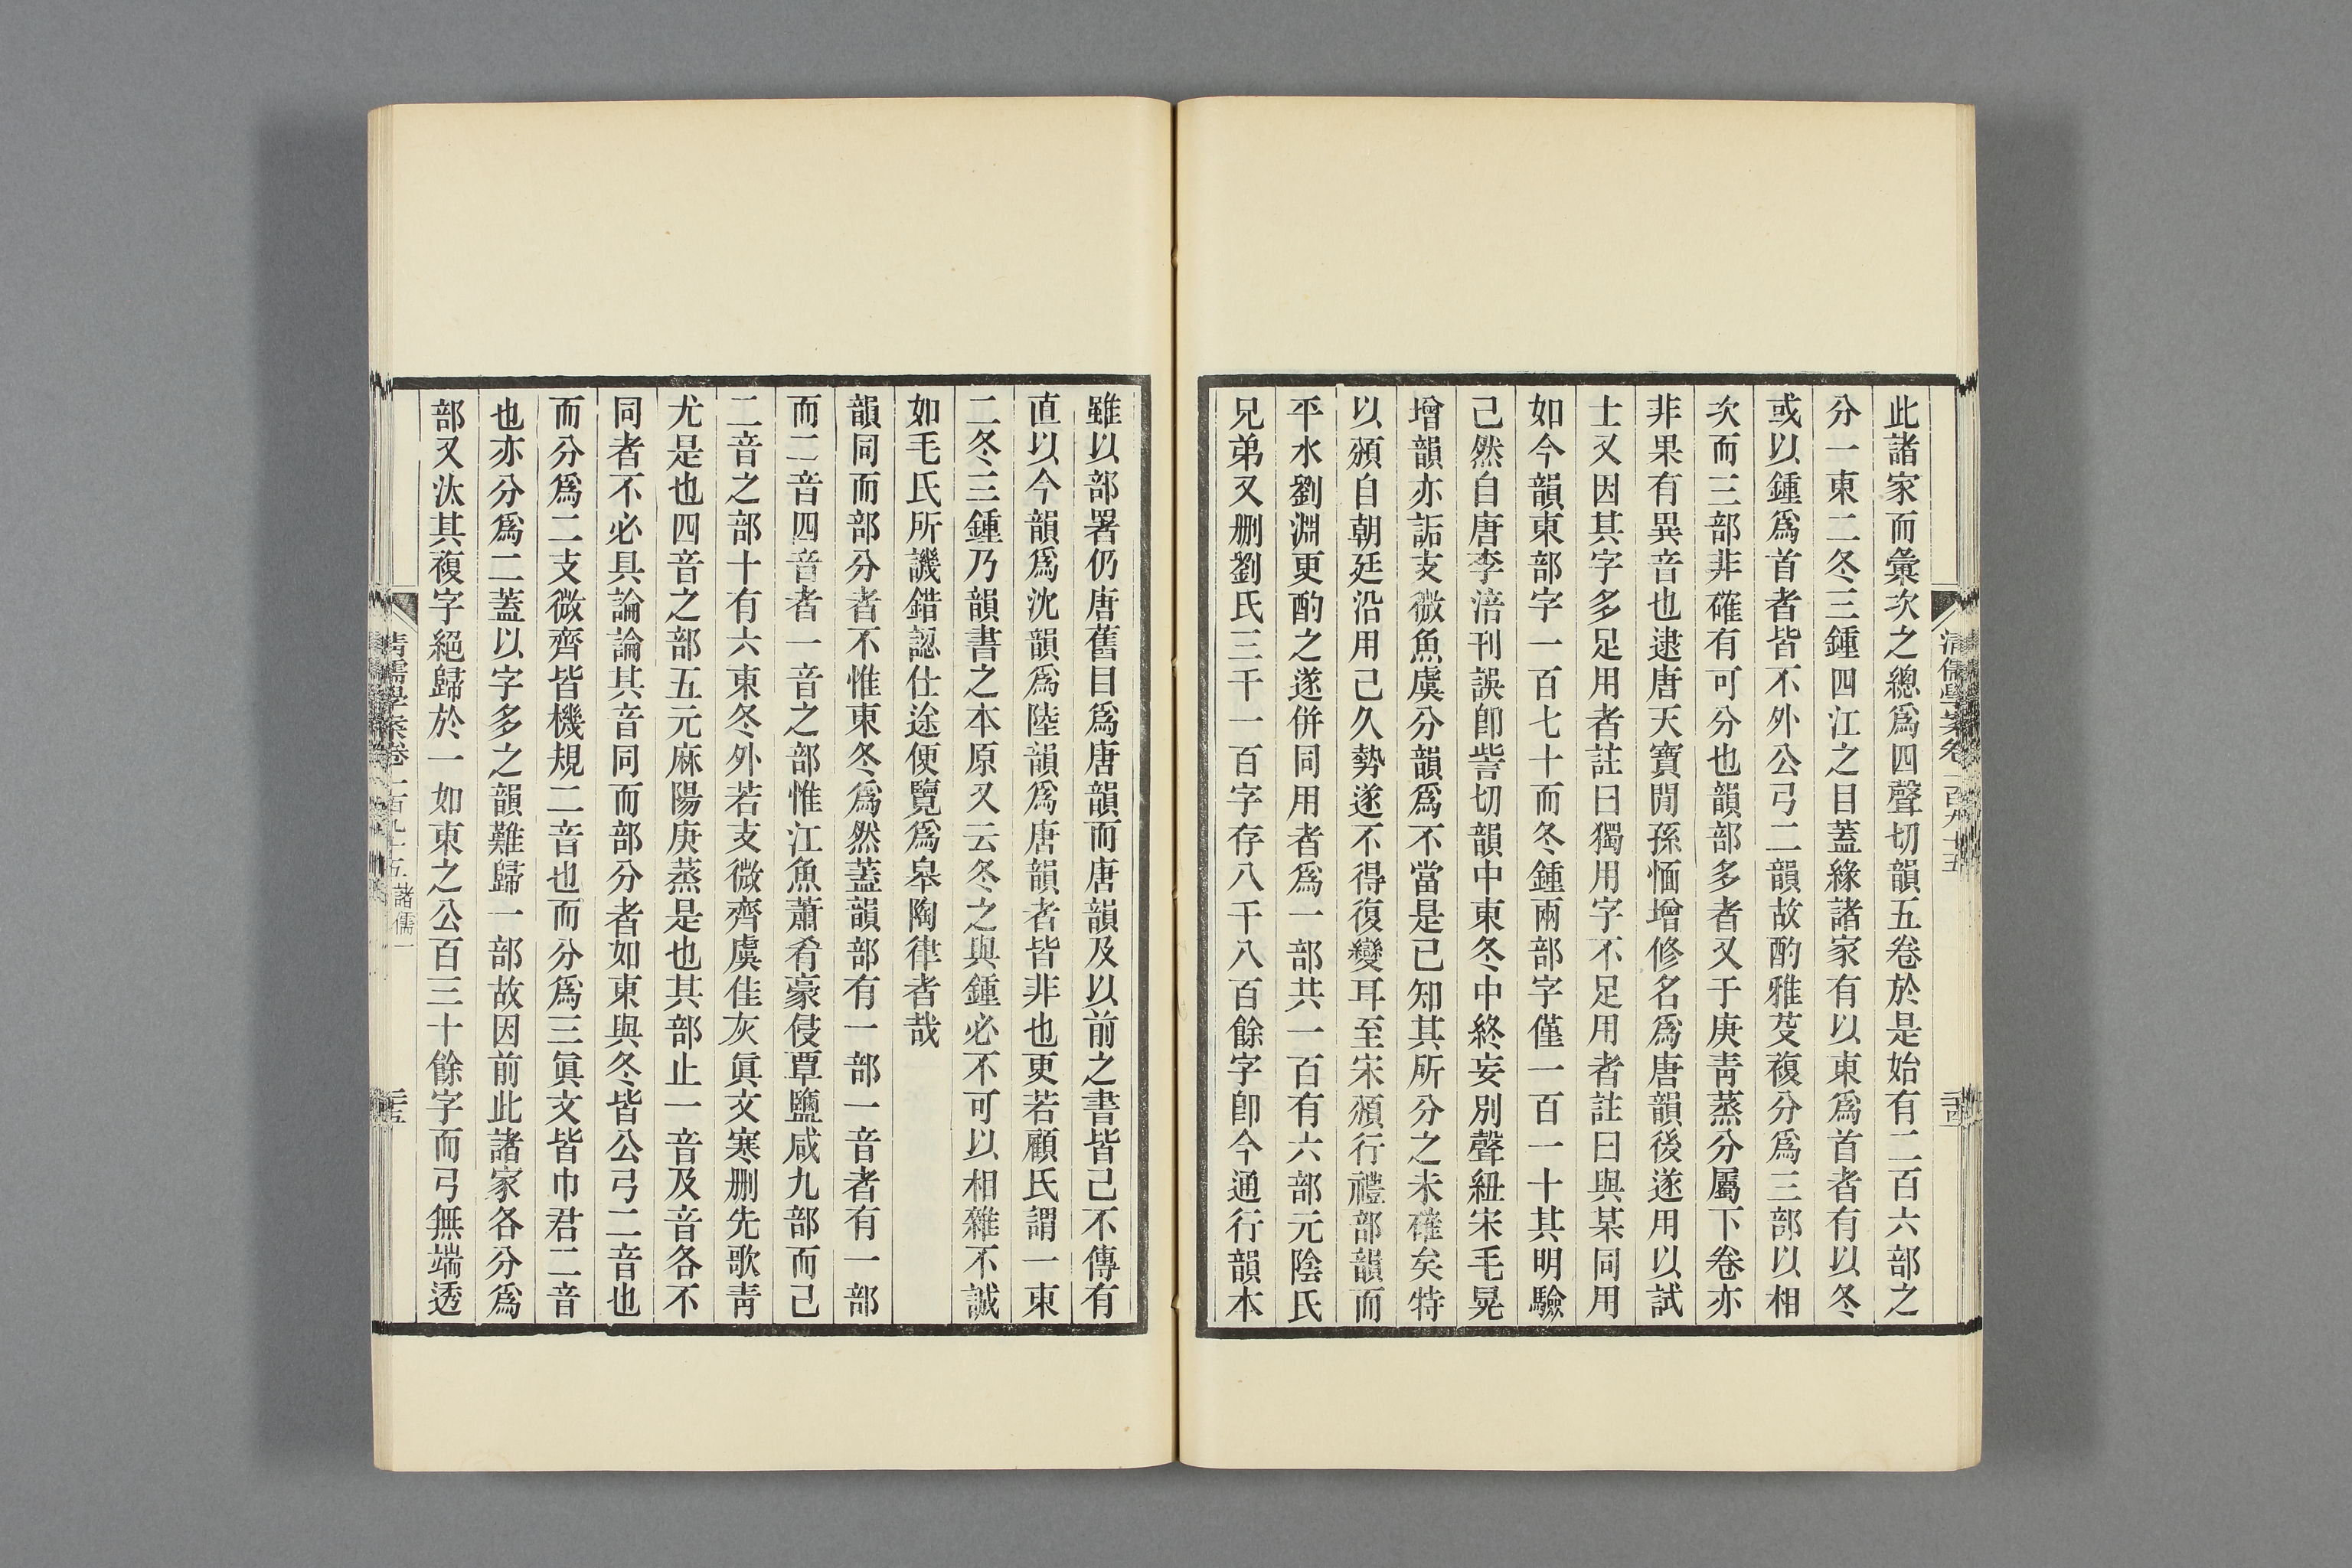 清儒學案卷一百九十五
二十四
此諸家而彙次之總爲四聲切韻五卷於是始有二百六部之
分一東二冬三鍾四江之目蓋緣諸家有以東爲首者有以冬
或以鍾爲首者皆不外公弓二韻故酌雅芟複分爲三部以相
次而三部非確有可分也韻部多者又于庚靑蒸分屬下卷亦
非果有異音也逮唐天寶閒孫愐增修名爲唐韻後遂用以試
士又因其字多足用者註曰獨用字不足用者註曰與某同用
如今韻東部字一百七十而冬鍾兩部字僅一百一十其明驗
己然自唐李涪刊誤卽訾切韻中東冬中終妄別聲紐宋毛晃
增韻亦詬支微魚虞分韻爲不當是已知其所分之未確矣特
以頒自朝廷沿用己久勢遂不得復變耳至宋頒行禮部韻而
平水劉淵更酌之遂併同用者爲一部共一百有六部元陰氏
兄弟又删劉氏三千一百字存八千八百餘字卽今通行韻本
雖以部署仍唐舊目爲唐韻而唐韻及以前之書皆己不傳有
直以今韻爲沈韻爲陸韻爲唐韻者皆非也更若顧氏謂一東
二冬三鍾乃韻書之本原又云冬之與鍾必不可以相雜不誠
如毛氏所譏錯認仕途便覽爲皋陶律者哉
韻同而部分者不惟東冬爲然蓋韻部有一部一音者有一部
而二音四音者一音之部惟江魚蕭肴豪侵覃鹽咸九部而己
二音之部十有六東冬外若支微齊虞佳灰眞文寒删先歌靑
尤是也四音之部五元麻陽庚蒸是也其部止一音及音各不
同者不必具論論其音同而部分者如東與冬皆公弓二音也
而分爲二支微齊皆機規二音也而分爲三眞文皆巾君二音
也亦分爲二蓋以字多之韻難歸一部故因前此諸家各分爲
部又汰其複字絕歸於一如東之公百三十餘字而弓無端透
清儒學案卷一百九十五 諸儒一
二十五